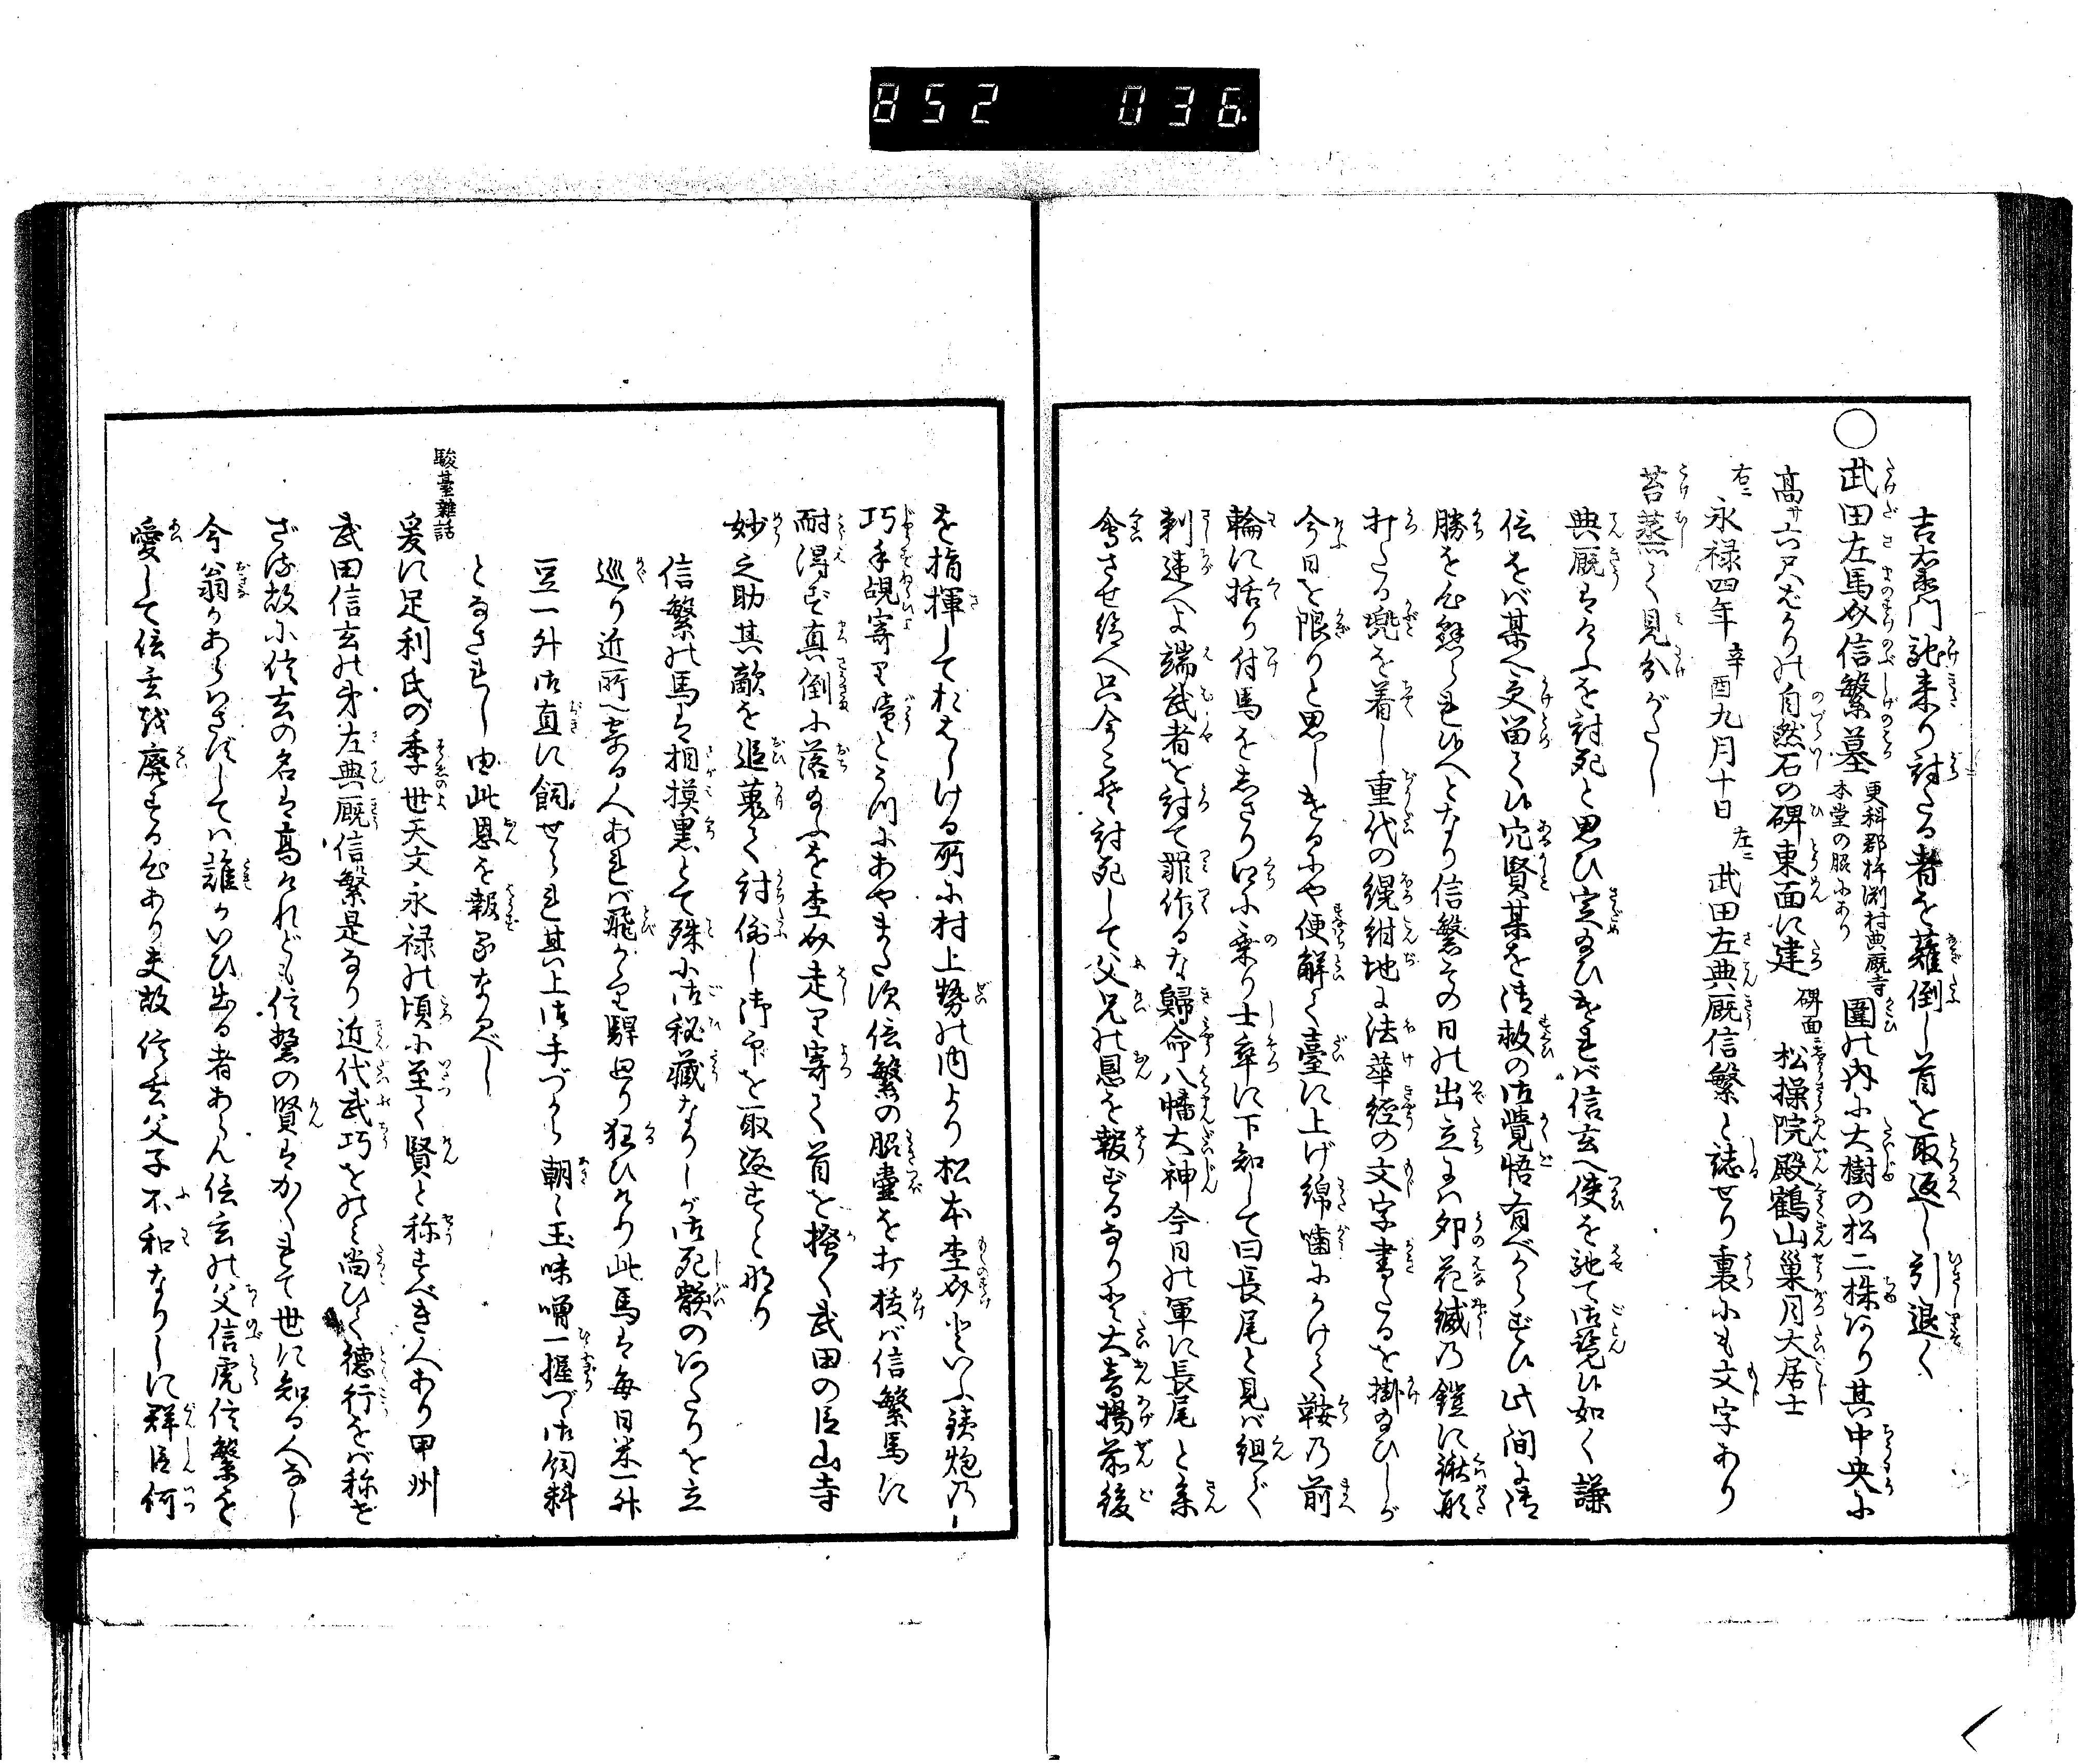 852 036.
吉右衛門馳来り討たる者を薙倒し首を取返し引退く
○武田左馬介信繁墓 更科郡杵渕村典厩寺本堂の脇にあり 圍の内に大樹の松二株あり其中央に
高サ六尺ばかりの自然石の碑東面に建 碑面ニ 松操院殿鶴山巣月大居士
右ニ 永禄四年辛酉九月十日 左ニ 武田左典厩信繁と誌せり裏にも文字あり
苔蒸て見分がたし
典厩はけふを討死と思ひ定給ひければ信玄へ使を馳て御覧候如く謙
信をば某へ受留て候穴賢某を御救の御覚悟有べからず候此間に御
勝を
信繁その日の出立は卯花縅の鎧に鍬形
打たる兜を着し重代の縨紺地に法華経の文字書たるを掛給ひしが
今日を限りと思しけるにや便解て臺に上げ綿噛にかけて鞍の前
輪に括り付馬をしさり口に乗り士卒に下知して曰長尾と見ば組で
刺違へよ端武者を討て罪作るな歸命八幡大神今日の軍に長尾と参
會させ給へ只今こそ討死して父兄の恩を報ずるなりと大音揚前後
を指揮しておはしける所に村上勢の内より松本杢介といふ鉄炮の
巧手覘寄り噇とうつにあやまたず信繁の脇壷を打抜ば信繁馬に
耐得ず真倒に落給ふを杢介走り寄て首を掻く武田の臣山寺
妙之助其敵を追蒐て討倒し御印を取返すと也り
信繁の馬は相摸黒とて殊に御秘藏なりしが御死骸のあたりを立
巡り近所へ寄る人あれば飛かゝり驛廻り狂ひけり此馬は毎日米一升
豆一升御直に飼せられ其上御手づから朝々玉味噌一握づゝ御飼料
となされし由此恩を報るなるべし
駿臺雜話
爰に足利氏の季世天文永禄の頃に至て賢と称すべき人あり甲州
武田信玄の弟左典厩信繁是なり近代武功をのミ尚ひて徳行をば称せ
ざる故に信玄の名は高けれども信繁の賢はかくれて世に知る人なし
今翁があらはさずしては誰かいひ出る者あらん信玄の父信虎信繁を
愛して信玄を廃する心あり夫故信玄父子不和なりしに群臣何